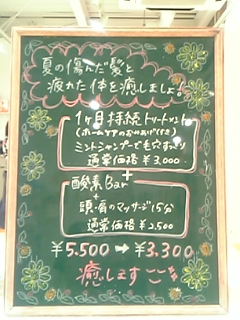 夏の傷んだ髪と
疲れた体を癒しましょ。
1ヶ月持続トリートメント
(ホームケアのおみあげ付き)
ミントシャンプーで毛穴すっきり
通常価格 ¥3,000
+
酸素Bar
+
頭・肩のマッサージ15分
通常価格 ¥2,500
¥5.500 ➡ ¥3.300
癒します